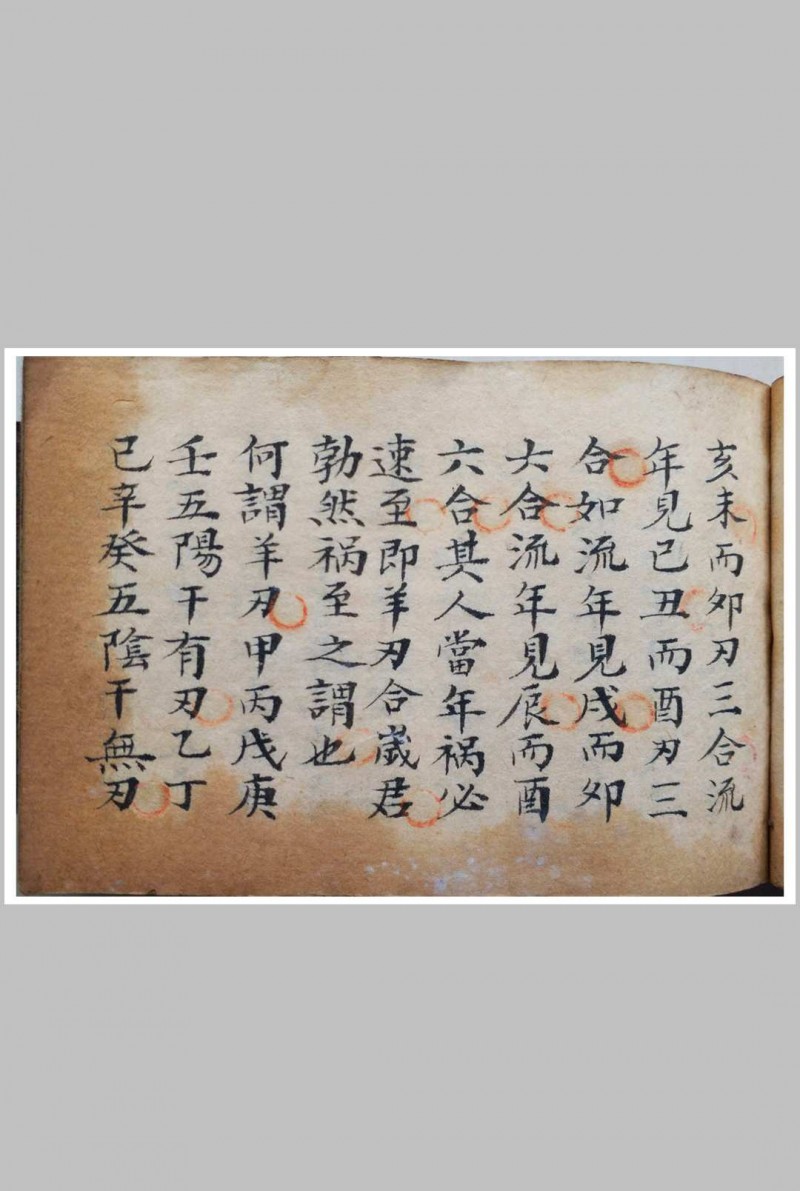 亥未而卯刃三合流
年見巳丑而酉刃三
合如流年見戌而卯
六合流年見辰而酉
六合其人當年祸必
速至即羊刃合嵗君
勃然祸至之謂也
何謂羊刃甲丙戊庚
壬五陽干有刃乙丁
己辛癸五陰干無刃